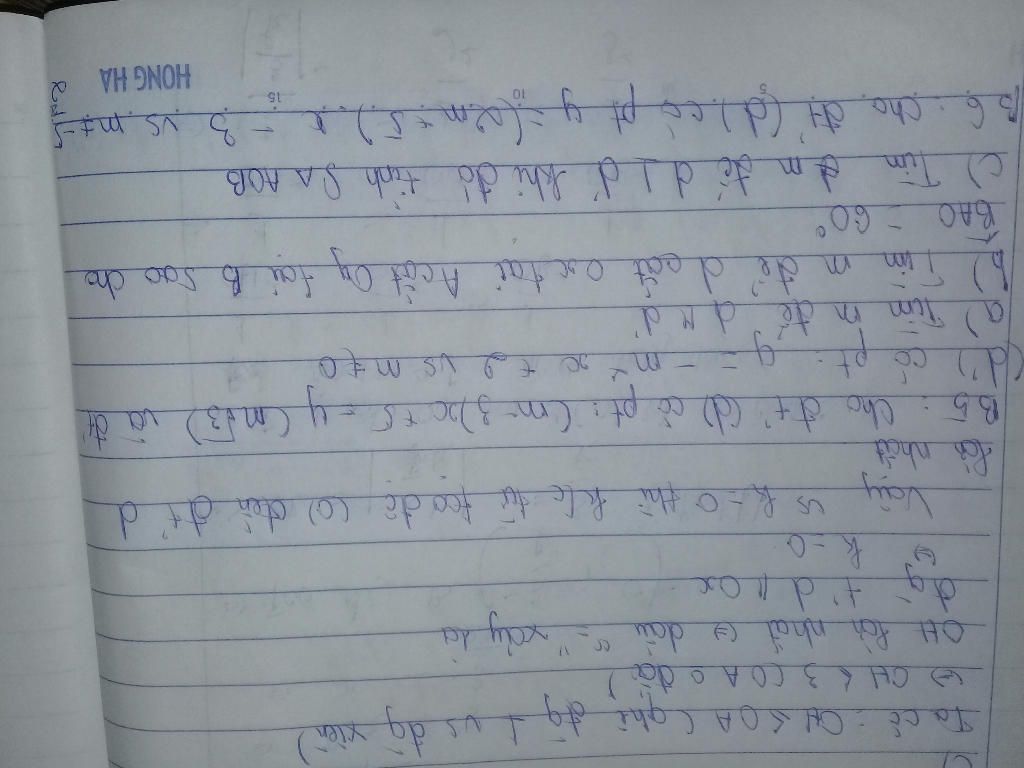 c)
Ta có: OH ≤ OA (qh đg ⊥ vs đg xiên)
⇔ OH ≤ 3 (OA = 3)
OH lớn nhất ⇔ dấu "=" xảy ra
đg t' d // Ox
⇔ k = 0
Vậy vs k = 0 thì k/c từ tọa độ (O) đến đt' d
lớn nhất
B5: Cho đt' (d) có pt: (m-3)x + 5 = y (m≠3) và đt'
(d') có pt: y = - m² x + 2 vs m ≠ 0
a) Tìm m để d // d'
b) Tìm m để d cắt Ox tại A cắt Oy tại B sao cho
BAO = 60°
c) Tìm m để d ⊥ d' khi đó tính S∆ AOB
B6: Cho đt' (d) có pt y = (2m + 5) x - 3 vs m ≠ -5/2
HONG HA
5 10 15